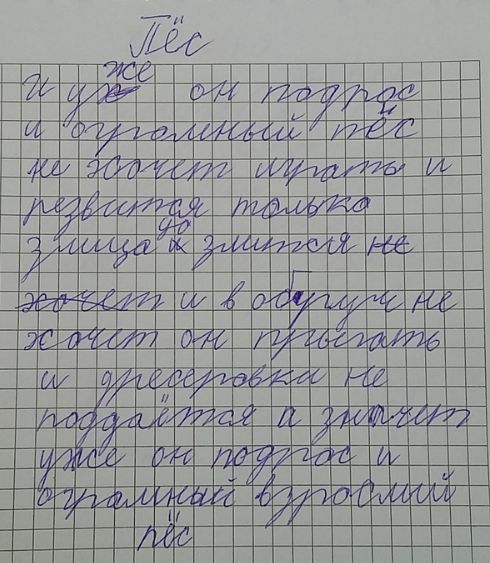 Пёс
И уже он подрос
и огромный пёс
не хочет играть и
резвится только
злица да злится не
хочет и в обруч не
хочет он прыгать
и дресеровки не
поддаётся а значет
уже он подрос и
огромный взрослий
пёс